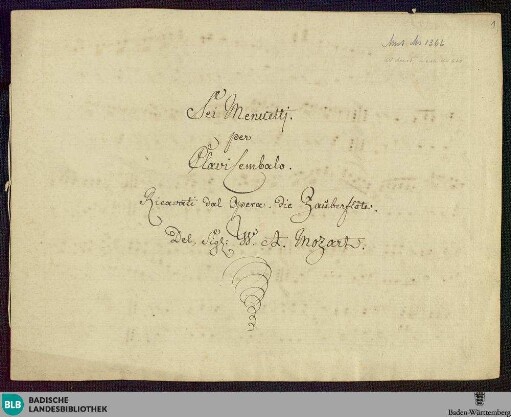 1
Mus. Hs 1262
Sei Menuetti.
per
Clavi Cembalo.
Ricavati dal Opera: die Zauberflöte.
Del Sigl: W. A. Mozart.
BLB BADISCHE
LANDESBIBLIOTHEK
Baden-Württemberg